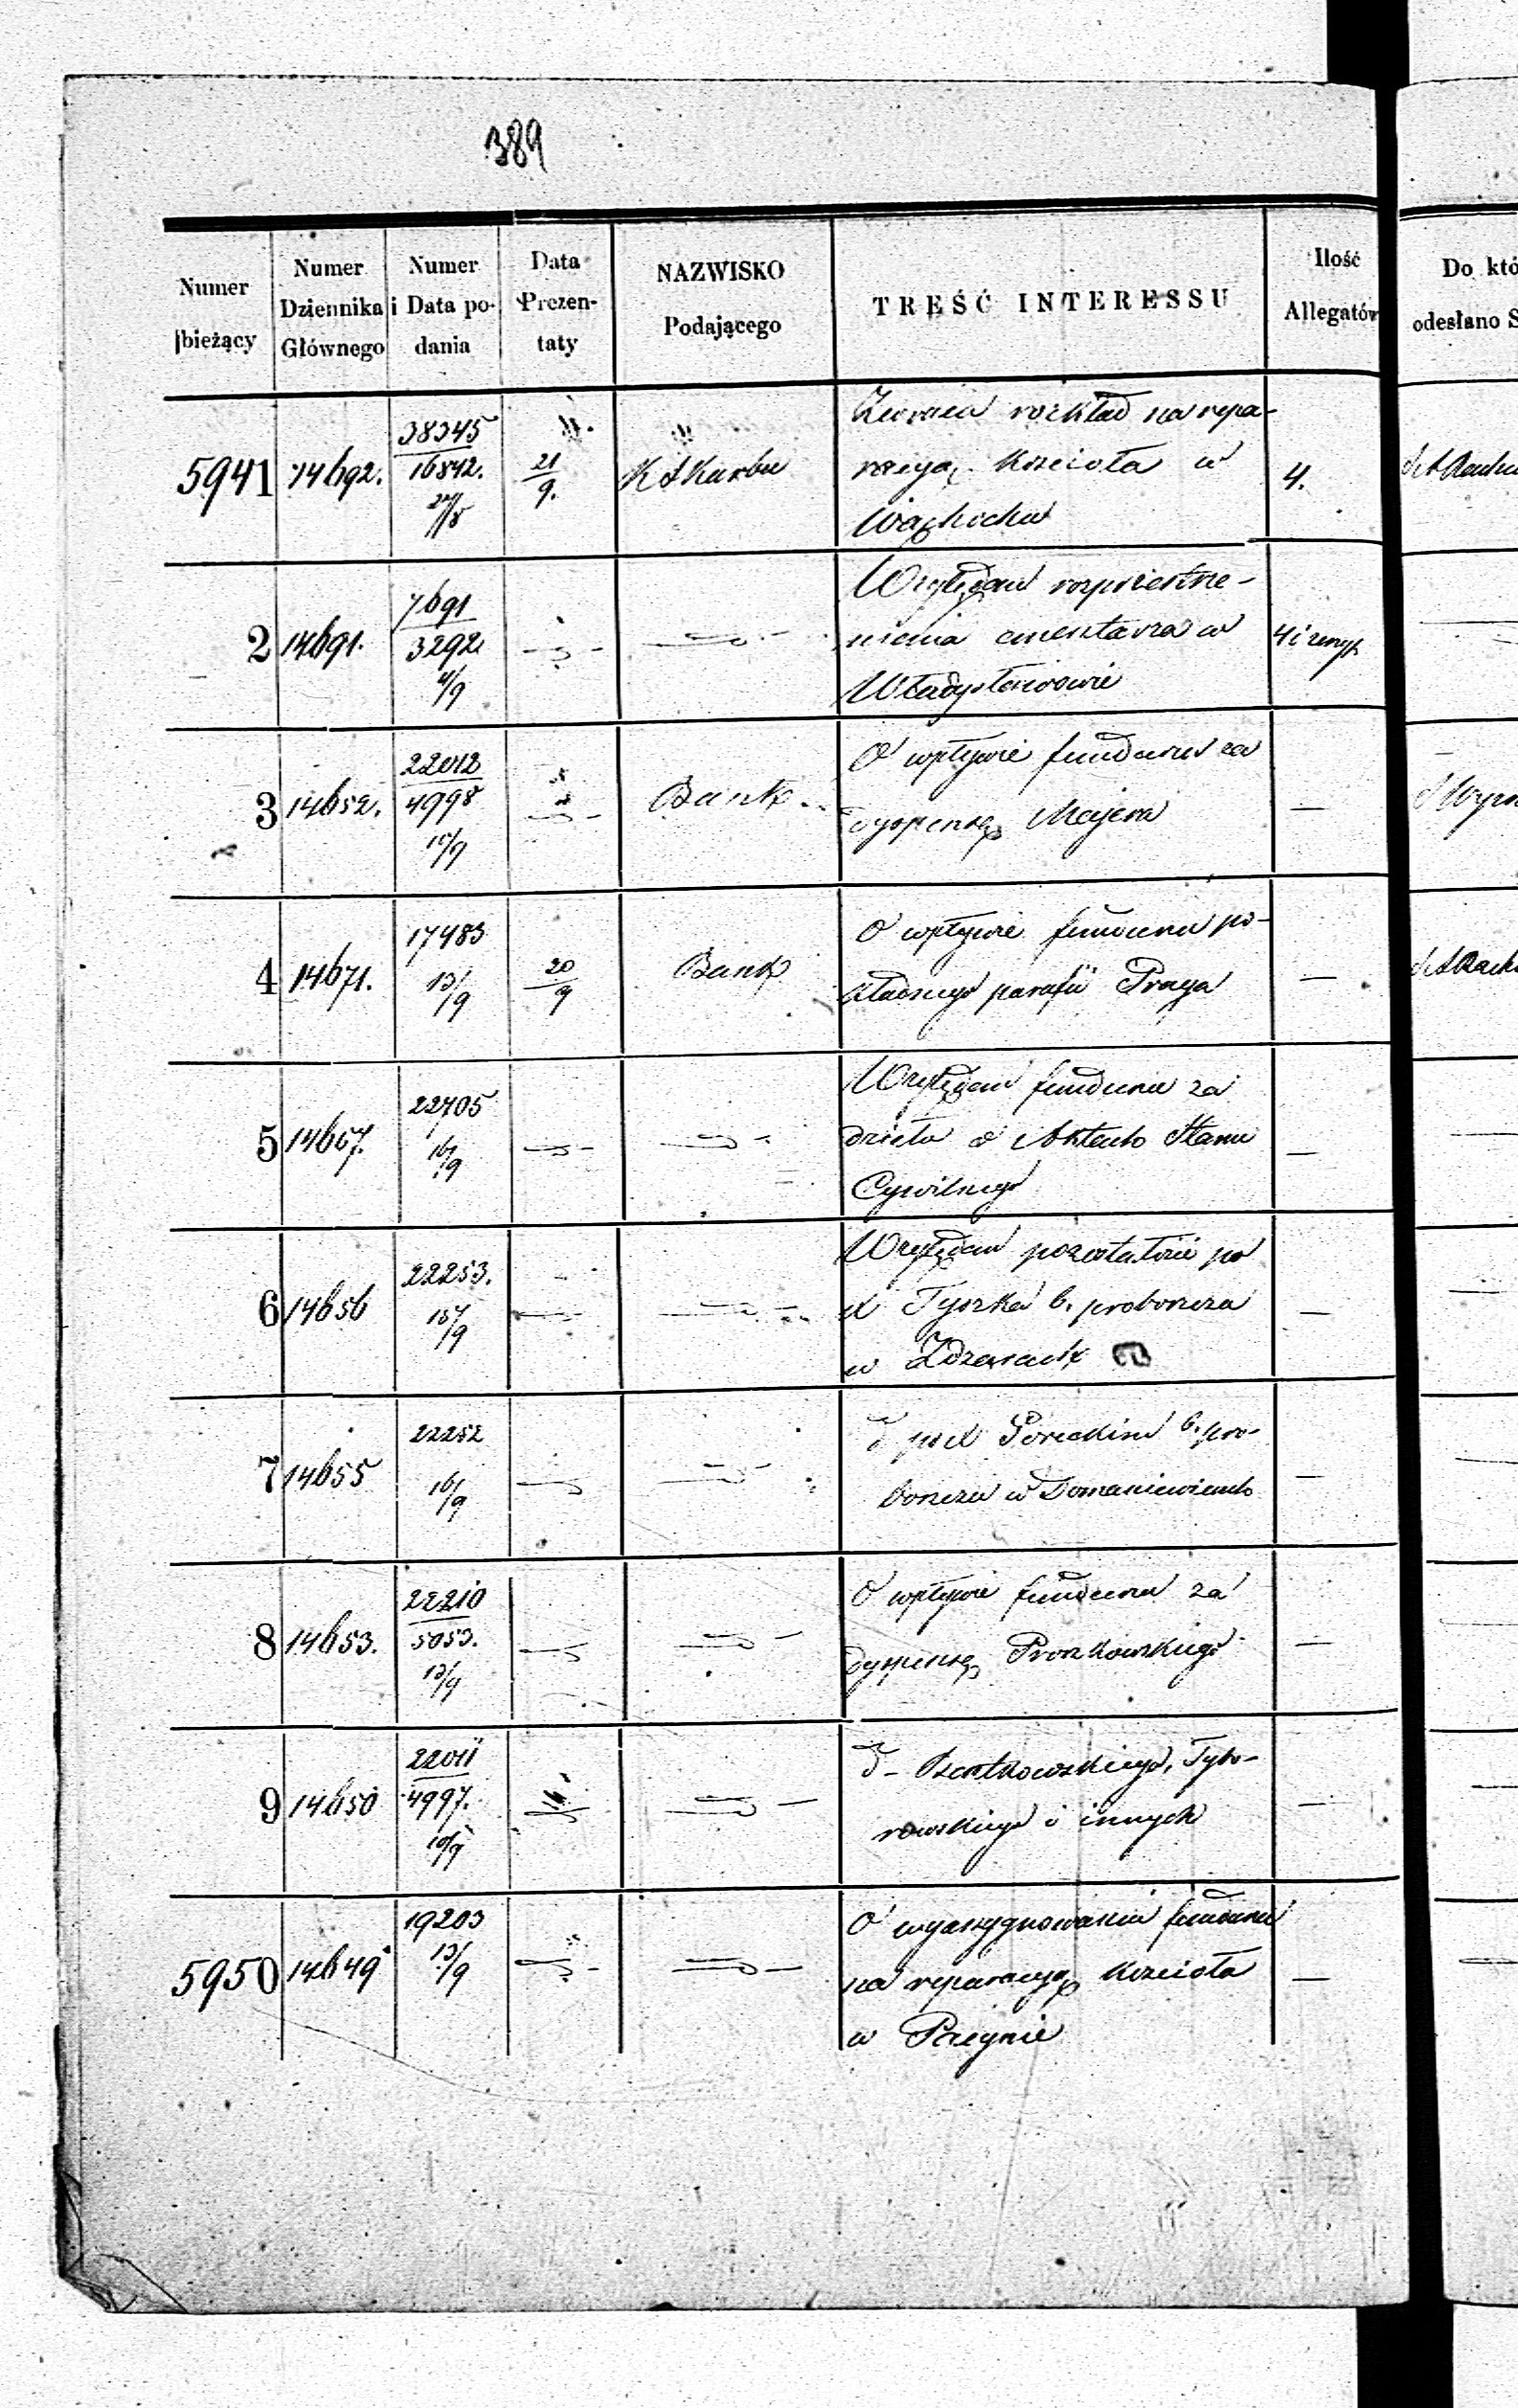 389
Numer bieżący
Numer Dziennika Głównego
Numer i Data podania
Data Prezentaty
NAZWISKO Podającego
TREŚĆ INTERESSU
Ilość Allegatów
Do któ
odesłano S
5941 14692. 38345 21 K Skarbu Zwraca rozkład na repa- 4.
16842. 9. racyą Kościoła w
Wąchocku
2 14691. 7691 Względem rozprzestrze- 4 i
3292 nienia cmentarza w
4/9 Władysławowie
3 14652. 22012 Bank O wpływie funduszu za —
4998 dyspensę Majera
10/9
4 14671. 17483 20 Bank O wpływie funduszu po- —
13/9 9 kładnego parafii Praga
5 14667. 22705 Względem funduszu za —
16/9 dzieło o Aktach Stanu
Cywilnego
6 14656 22253. Względem pozostałości po —
15/9 X Tyszka b. proboszcza
w Zdzarach
7 14655 22252 d po X Goreckim b. pro- —
16/9 boszczu w Domaniewicach
8 14653. 22210 O wpływie funduszu za —
5053. dyspensę Proszkowskiego
13/9
9 14650 22011 d - Tybo- —
4997. rowskiego i innych
10/9
5950 14649 19203 O wyassygnowaniu funduszu —
13/9 na reparacyą Kościoła
w